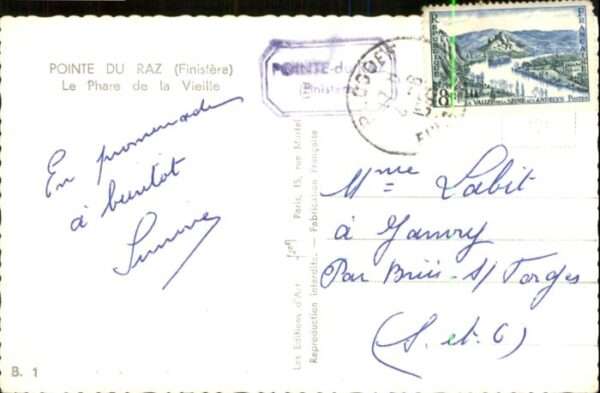 POINTE DU RAZ (Finistère)
Le Phare de la Vieille
En promenade
à bientôt
B. 1
Les Editions d'Art Paris, 15, rue Martel
Reproduction interdite. - Fabrication Française
POINTE-du-
Finistère
PLOGOFF
REPUBLIQUE FRANÇAISE
18F
LA VALLÉE DE LA SEINE AUX ANDELYS POSTES
Mme Labit
à Janvry
Par Briis-s/Forges
(S. et O)